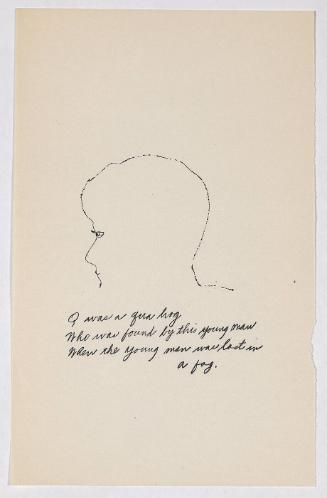 I was a qua hog
Who was found by this young man
When the young man was lost in
a fog.